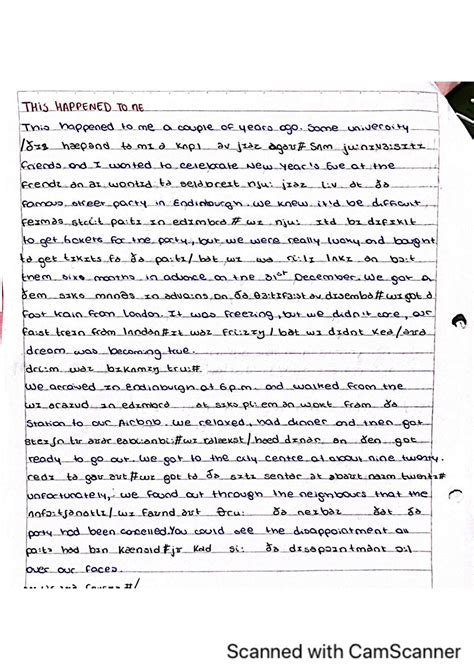 THIS HAPPENED TO ME
This happened to me a couple of years ago. Some university
/ðɪs hæpənd tə mɪ ə kʌpl əv jɪəz əgəʊ# sʌm ju:nɪvɜ:sɪtɪ
friends and I wanted to celebrate New Year's Eve at the
frendz ən aɪ wɒntɪd tə seləbreɪt nju: jɪəz i:v ət ðə
famous street party in Endinburgh. We knew it'd be difficult
feɪməs stri:t pɑ:tɪ ɪn edɪmbrə# wɪ nju: ɪtd bɪ dɪfɪklt
to get tickets for the party, but we were really lucky and bought
tə get tɪkɪts fə ðə pɑ:tɪ/ bət wɪ wə rɪ:lɪ lʌkɪ ən bɔ:t
them sixs months in advance on the 31st December. We got a
ðəm sɪks mʌnθs ɪn ədvɑ:ns ɒn ðə θɜ:tɪfɜ:st əv dɪsembə# wɪ gɒt ə
fast train from London. It was freezing, but we didn't care, our
fɑ:st treɪn frəm lʌndən# ɪt wəz fri:zɪŋ/ bət wɪ dɪdnt keə/ɑ:
dream was becoming true.
dri:m wəz bɪkʌmɪŋ tru:#
We arraved in Endinburgh at 6 p.m. and walked from the
wɪ əraɪvd ɪn edɪmbrə ət sɪks pi: em ən wɔ:kt frəm ðə
station to our Airbnb. We relaxed, had dinner and then got
steɪʃn tʊ ɑ: eəbi:ənbi:# wɪ rɪlækst/ həd dɪnər ən ðen gɒt
ready to go out. We got to the city centre at about nine twenty.
redɪ tə gəʊ aʊt# wɪ gɒt tə ðə sɪtɪ sentər ət əbaʊt naɪn twentɪ#
unfortunately, we found out through the neighbours that the
ʌnfɔ:tʃənətlɪ/ wɪ faʊnd aʊt θru: ðə neɪbəz ðət ðə
party had been cancelled. You could see the disappointment all
pɑ:tɪ həd bɪn kænsld# jʊ kəd si: ðə dɪsəpɔɪntmənt ɔ:l
over our faces.
Scanned with CamScanner